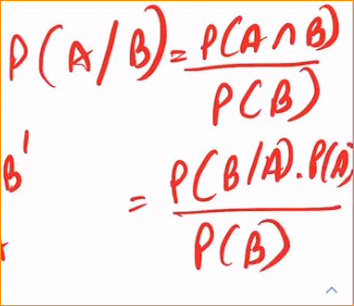 P(A/B) = P(A∩B)
P(B)
B'
= P(B/A).P(A)
P(B)